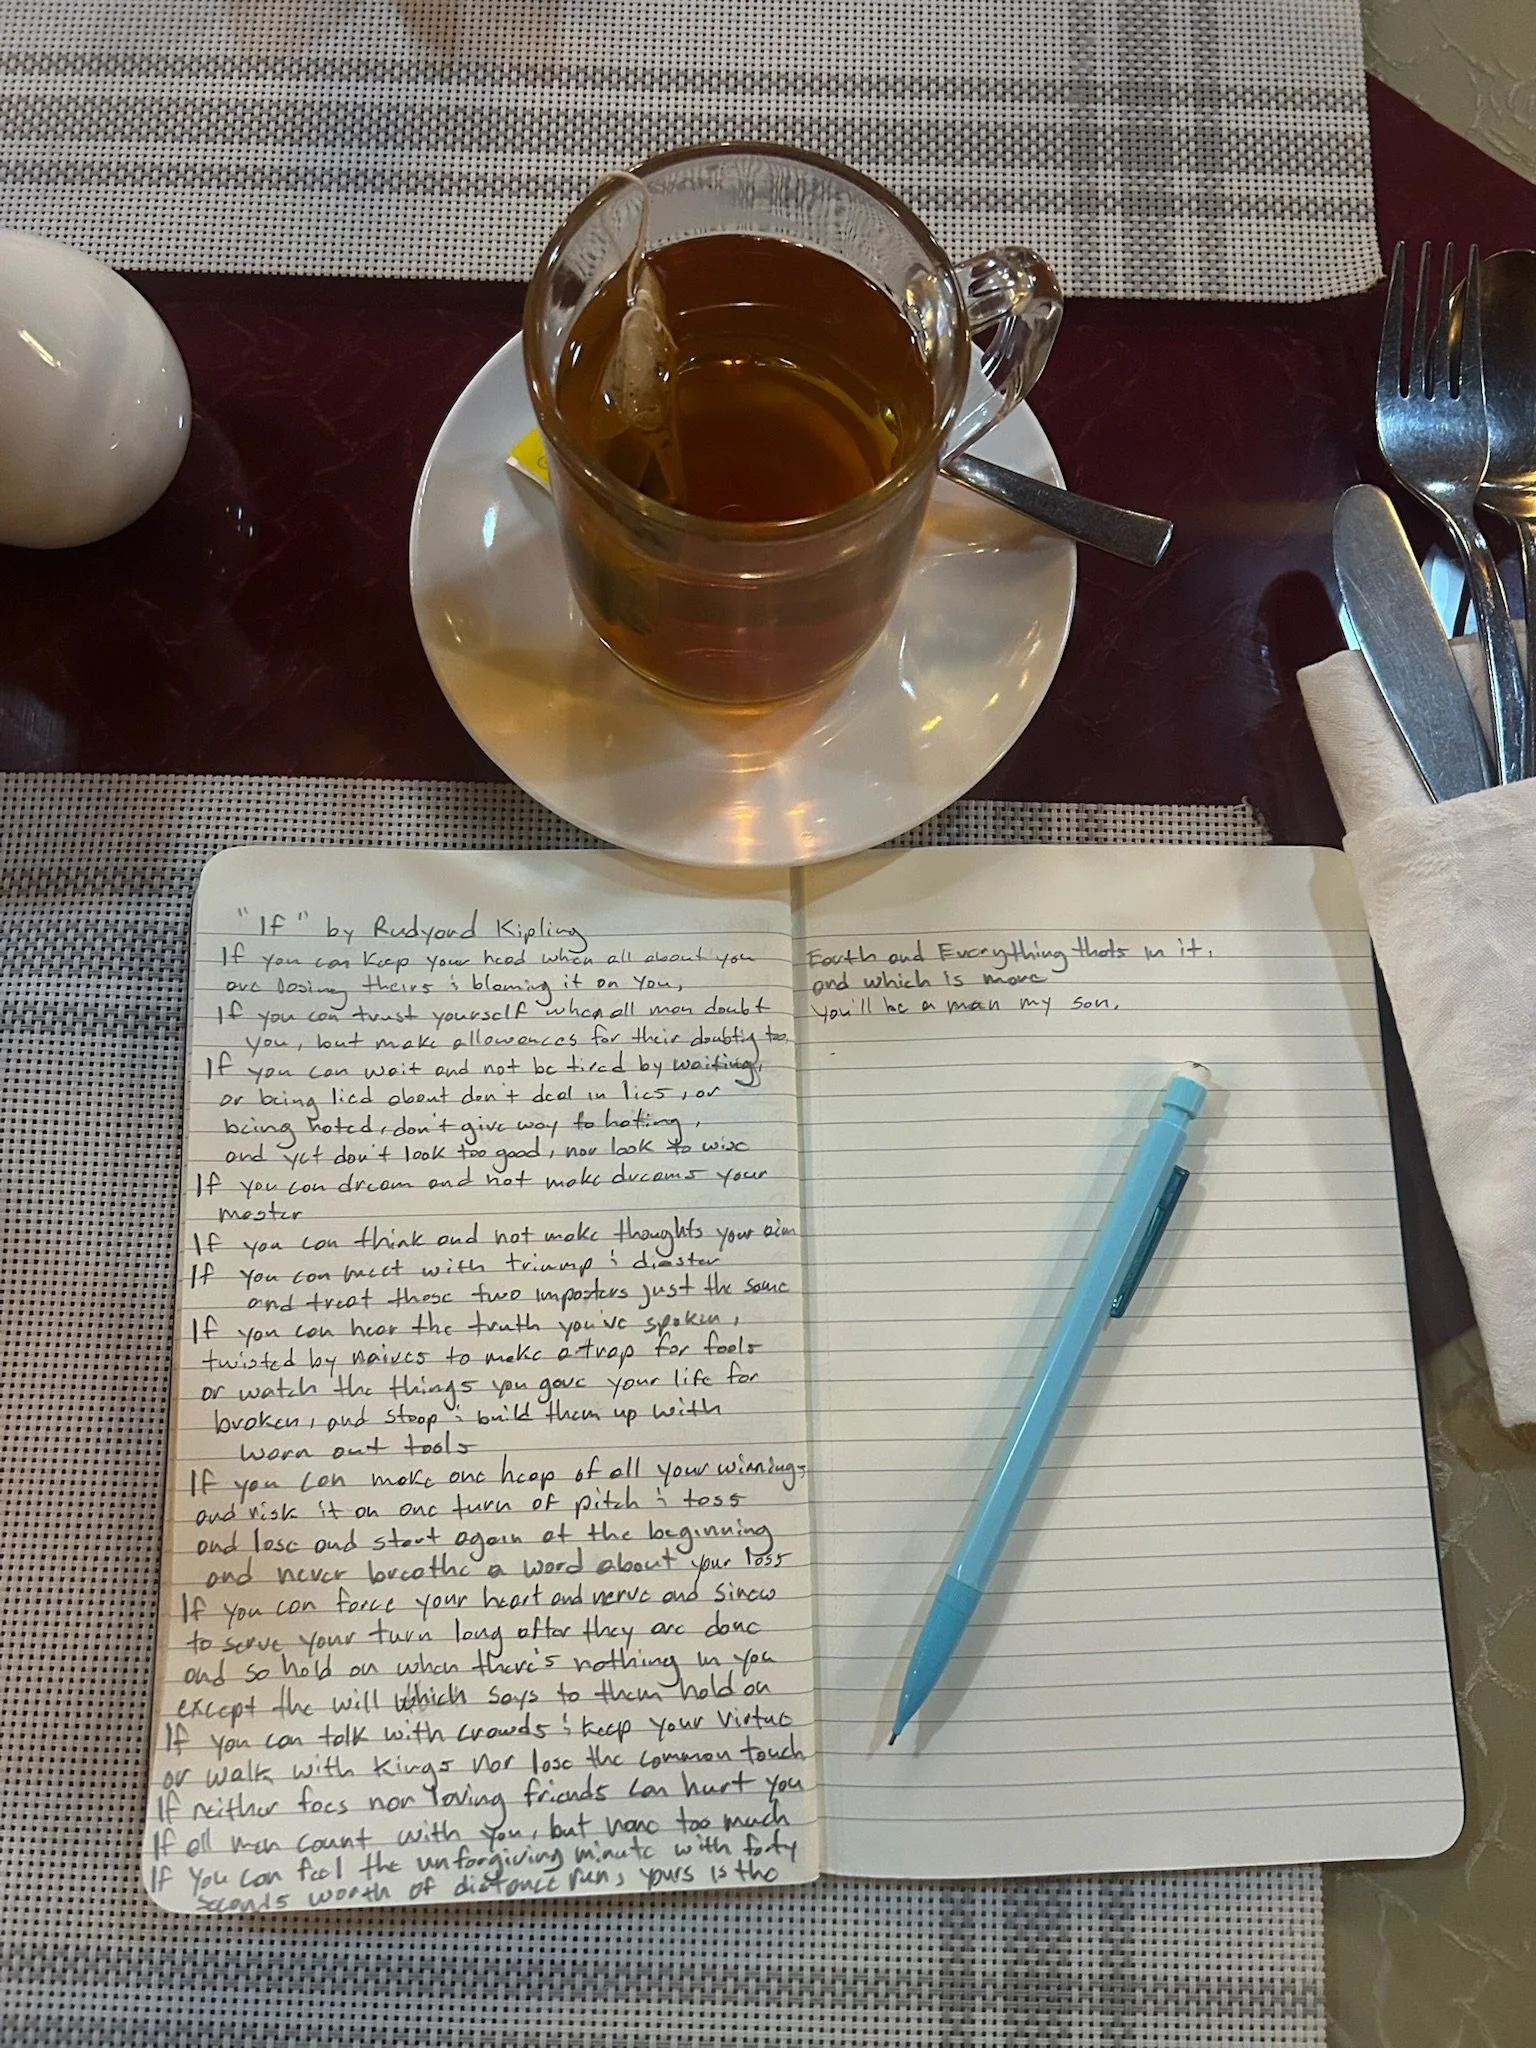 "If" by Rudyard Kipling
If you can keep your head when all about you
are losing theirs & blaming it on you,
If you can trust yourself when all men doubt
you, but make allowences for their doubtig too,
If you can wait and not be tired by waiting,
or being lied about don't deal in lies, or
being hated, don't give way to hating,
and yet don't look too good, nor look to wise
If you can dream and not make dreams your
master
If you can think and not make thoughts your aim
If you can meet with triump & diaster
and treat those two imposters just the same
If you can hear the truth you've spoken,
twisted by naives to make a trap for fools
or watch the things you gave your life for
broken, and stoop & build them up with
worn out tools
If you can make one heap of all your winnings
and risk it on one turn of pitch & toss
and lose and start again at the beginning
and never breathe a word about your loss
If you can force your heart and nerve and sinew
to serve your turn long after they are done
and so hold on when there's nothing in you
except the will which says to them hold on
If you can talk with crowds & keep your virtue
or walk with kings nor lose the common touch
If neither foes nor loving friends can hurt you
If all men count with you, but none too much
If you can feel the unforgiving minute with forty
seconds worth of distance run, yours is the
Earth and Everything thats in it,
and which is more
you'll be a man my son.